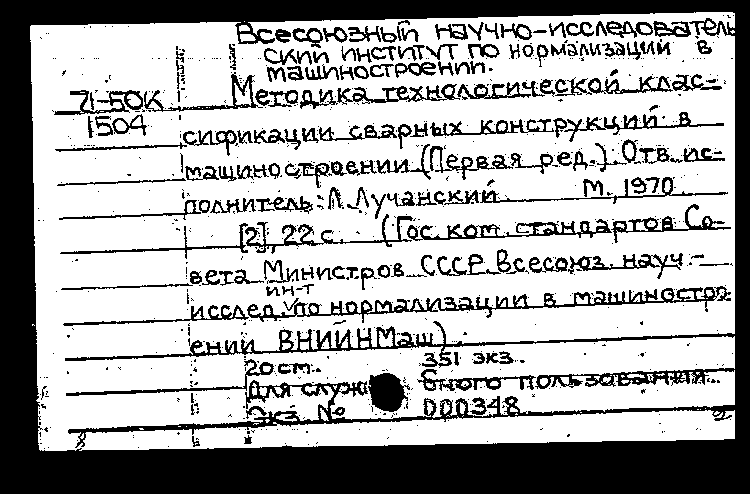 Всесоюзный научно-исследователь
ский институт по нормализации в
машиностроении.
71-50К Методика технологической клас-
1504
сификации сварных конструкций в
машиностроении (Первая ред.) Отв. ис-
полнитель: Л. Лучанский. М., 1970.
[2], 22 с. (Гос. ком. стандартов Со-
вета Министров СССР. Всесоюз. науч.-
ин-т
исслед. по нормализации в машиностро
ении ВНИЙНМаш).
20 см. 351 экз.
Для служебного пользования.
Экз. № 000348